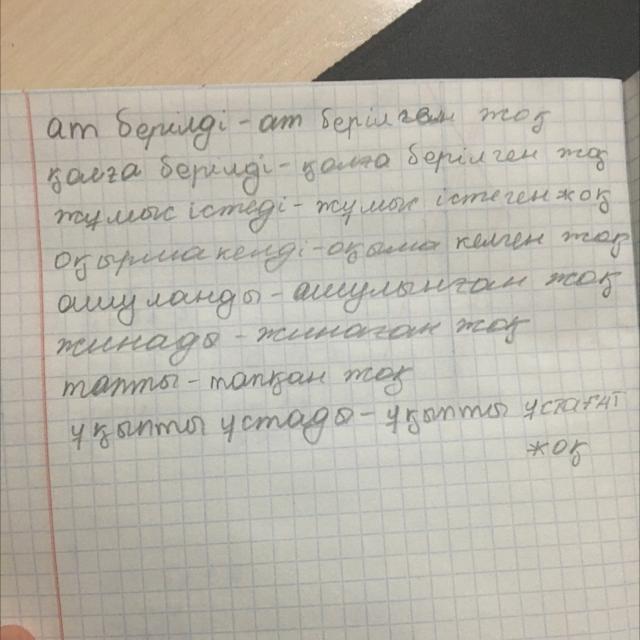 ат берілді - ат берілген жоқ
қолға берілді - қолға берілген жоқ
жұмыс істеді - жұмыс істеген жоқ
келді - келген жоқ
ашуланды - ашулынған жоқ
жинады - жинаған жоқ
тапты - тапқан жоқ
ұқыпты ұстады - ұқыпты
жоқ